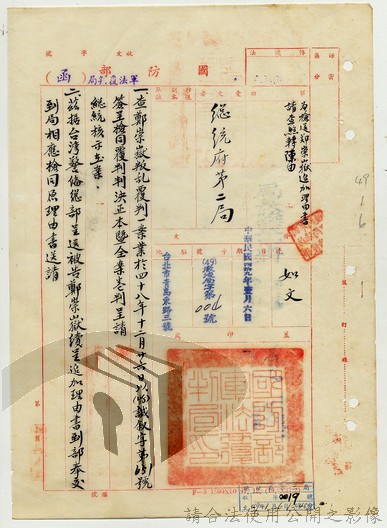 收文 字 號
國防部
軍法覆判局
(函)
為檢送鄭崇嶽追加理由書
請查照轉陳由
總統府第二局
如文
中華民國四十九年壹月六日
(49)
004
號
台北市青島東路三號
一、查鄭崇嶽叛亂覆判一案業於四十八年十二月廿六日以(48)誠敬字第651號
簽呈檢同覆判判決正本暨全案卷判呈請
總統核示在案。
二、茲據台灣警備總部呈送被告鄭崇嶽續呈追加理由書到部奉交
到局相應檢同原理由書送請
49
1
6
0019
請合法使用公開之影像